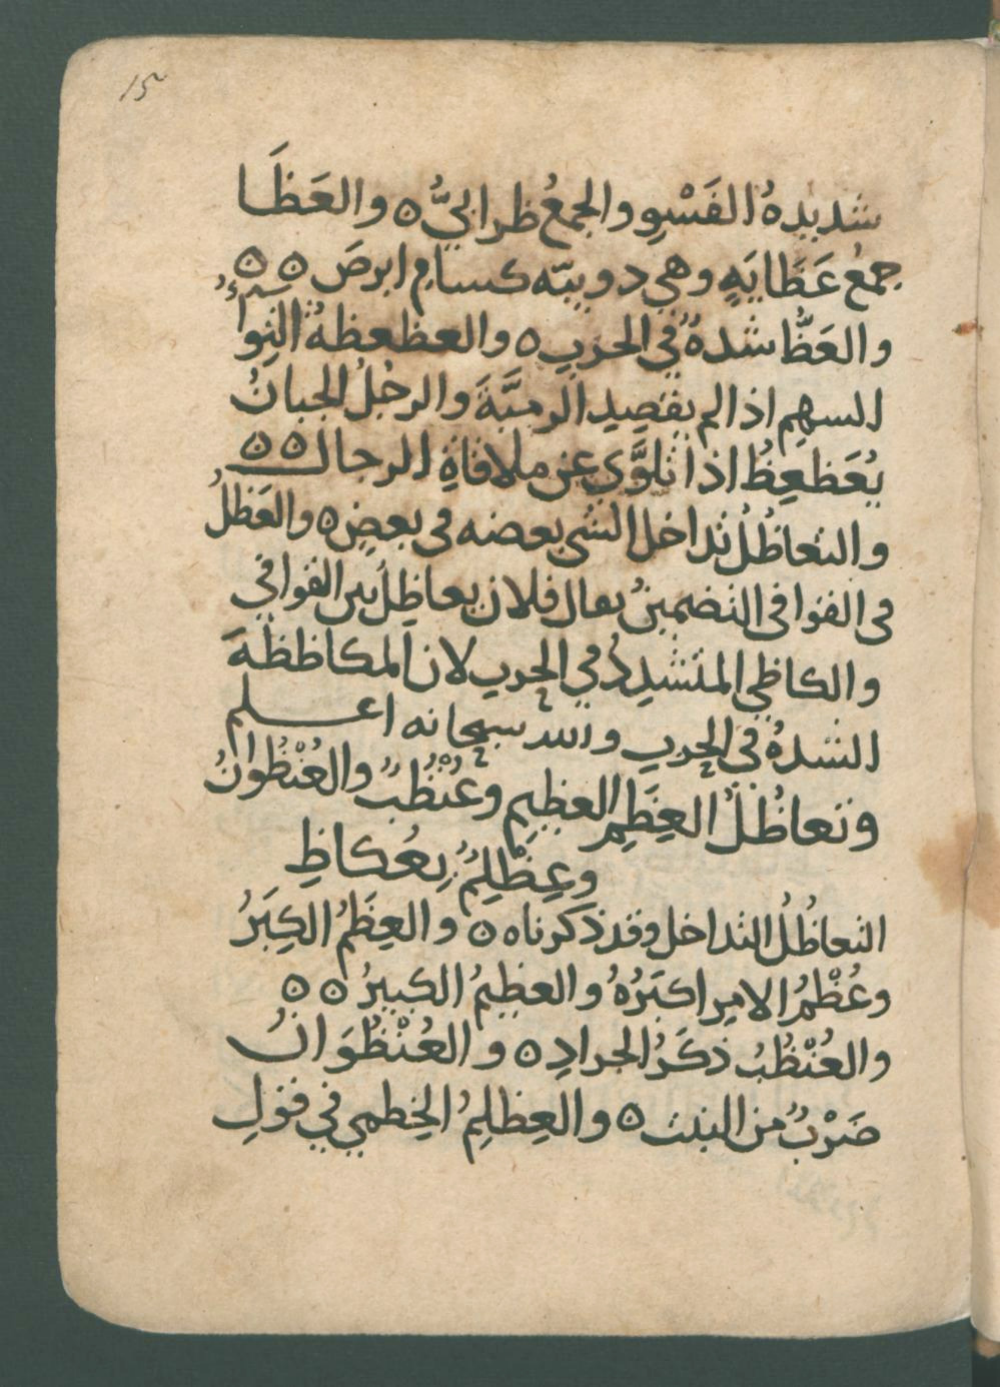 15
شديدةُ الفَسْوِ والجمعُ ظرابيُّ ٥ والعَظَا
جمعُ عَظَايَةٍ وهي دويبّه كسامِ ابرصَ ٥ ٥
والعَظُّ شدةٌ في الحربِ ٥ والعظعظةُ التِواءُ
السهمِ اذا لم يقصِدِ الرميَّةَ والرجُلُ الجبانُ
يُعَظعِظُ اذا تلوَّى عن ملاقاةِ الرجال ٥ ٥
والتعاظُلُ تداخل الشي بعضه في بعضٍ ٥ والعَظلُ
في القوافي التضمينُ يقال فلان يعاظِلُ بين القوافي
والكاظي المتشدِدُ في الحربِ لان المكاظظةَ
الشدةُ في الحربِ والله سبحانه اعلم
وتعاظُلُ العِظَمِ العظيمِ وعُنْظُبٌ والعُنْظُوانُ
وعِظْلِمٌ بِعُكاظِ
التعاظُلُ التداخل وقد ذكرناه ٥ والعِظَمُ الكِبَرُ
وعُظْمُ الامرِ اكبَرُهُ والعظيمُ الكبيرُ ٥ ٥
والعُنْظُبُ ذكَرُ الجرادِ ٥ والعُنْظُوَانُ
ضَرْبٌ من النبت ٥ والعِظلِمُ الخِطمي في قولِ